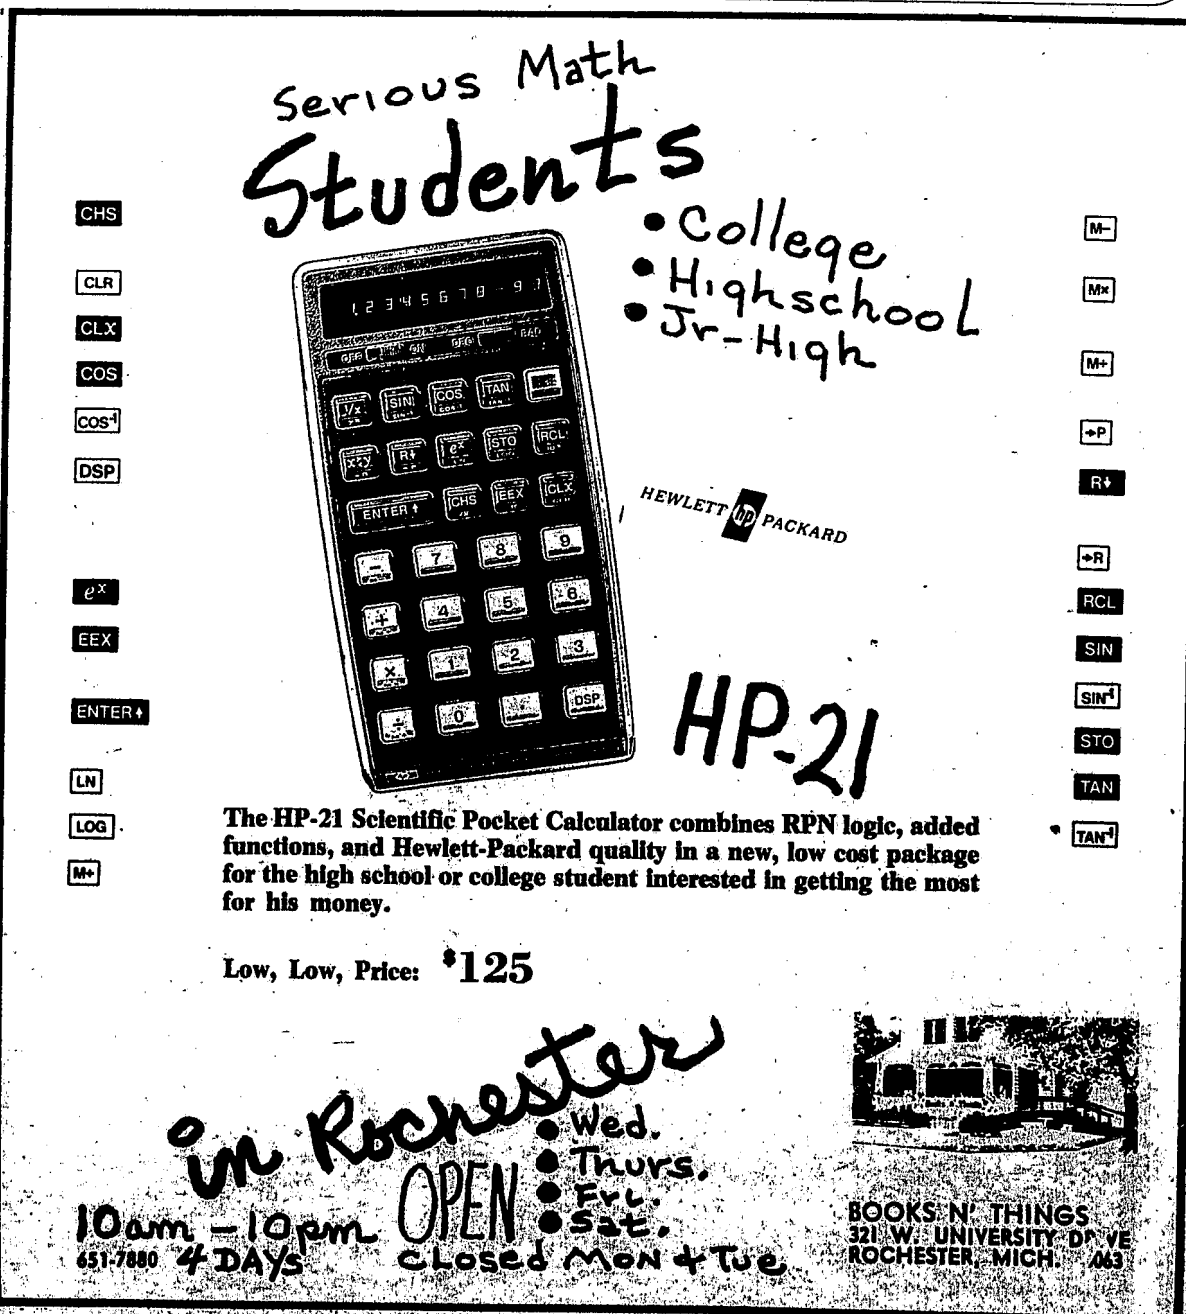 Serious Math
Students
• College
• Highschool
• Jr-High
CHS
CLR
CLX
COS
COS⁻¹
DSP
eˣ
EEX
ENTER↑
LN
LOG
M+
M−
M×
M+
→P
R↓
→R
RCL
SIN
SIN⁻¹
STO
TAN
TAN⁻¹
OFF ON DEG RAD
1/x SIN COS TAN
x≷y R↓ eˣ STO RCL
ENTER↑ CHS EEX CLX
− 7 8 9
+ 4 5 6
× 1 2 3
÷ 0 . DSP
HEWLETT hp PACKARD
HP-21
The HP-21 Scientific Pocket Calculator combines RPN logic, added
functions, and Hewlett-Packard quality in a new, low cost package
for the high school or college student interested in getting the most
for his money.
Low, Low, Price: $125
in Rochester
OPEN
• Wed.
• Thurs.
• Fri.
• Sat.
10am - 10pm
651-7880 4 DAYS
CLOSED MON & Tue
BOOKS N' THINGS
321 W. UNIVERSITY
ROCHESTER, MICH.